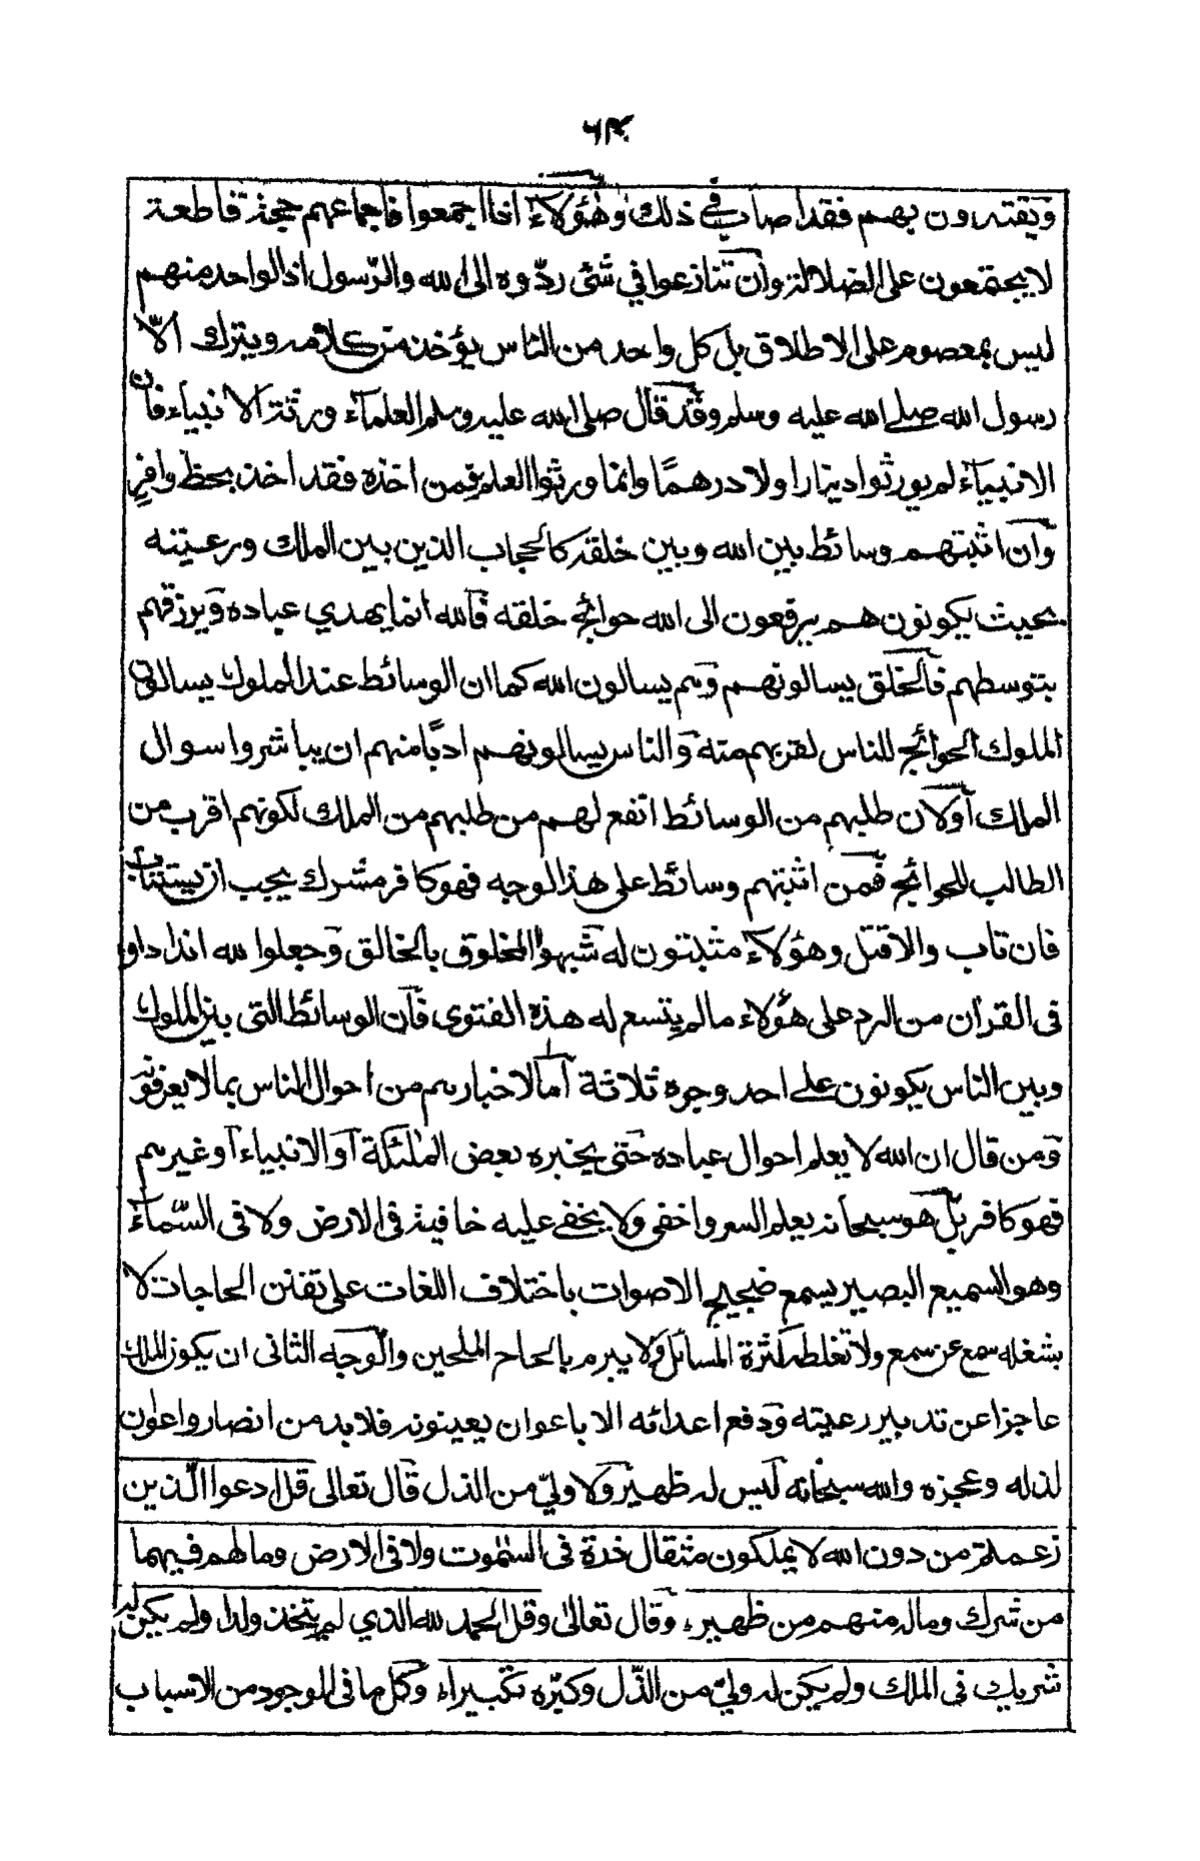 ويقتدون بهم فقد اصاب في ذلك وهؤلاء اذا اجمعوا فاجماعهم حجة قاطعة
لا يجتمعون على الضلالة وان تنازعوا في شئ ردّوه الى الله والرّسول اذ الواحد منهم
ليس بمعصوم على الاطلاق بل كل واحد من الناس يؤخذ من كلامه ويترك الّا
رسول الله صلے الله عليه وسلم وقد قال صلى الله عليه وسلم العلماء ورثة الانبياء فان
الانبياء لم يورثوا دينارا ولا درهمًا وانما ورثوا العلم فمن اخذه فقد اخذ بحظ وافرٍ
وان اثبتهم وسائط بين الله وبين خلقه كالحجاب الذين بين الملك ورعيته
بحيث يكونون هم يرفعون الى الله حوائج خلقه فالله انما يهدي عباده ويرزقهم
بتوسطهم فالخلق يسالونهم وهم يسالون الله كما ان الوسائط عند الملوك يسالون
الملوك الحوائج للناس لقربهم منه والناس يسالونهم ادبًا منهم ان يباشروا سوال
الملك اولان طلبهم من الوسائط انفع لهم من طلبهم من الملك لكونهم اقرب من
الطالب للحوائج فمن اثبتهم وسائط على هذا الوجه فهو كافر مشرك يجب ان يستتاب
فان تاب والا قتل وهؤلاء مثبتون له شبهوا المخلوق بالخالق وجعلوا لله اندادا و
فى القرآن من الرد على هؤلاء ما لم يتسع له هذه الفتوى فان الوسائط التى بين الملوك
وبين الناس يكونون علے احد وجوه ثلاثة اما لاخبارهم من احوال الناس بما لا يعرفونه
ومن قال ان الله لا يعلم احوال عباده حتى يخبره بعض الملئكة او الانبياء او غيرهم
فهو كافر بل هو سبحانه يعلم السر واخفى ولا يخفے عليه خافية فى الارض ولا فى السّماء
وهو السميع البصير يسمع ضجيج الاصوات باختلاف اللغات على تفنن الحاجات لا
يشغله سمع عن سمع ولا تغلطه كثرة المسائل ولا يبرم بالحاح الملحين والوجه الثانى ان يكون الملك
عاجزا عن تدبير رعيته ودفع اعدائه الا باعوان يعينونه فلا بد من انصار واعوان
لذله وعجزه والله سبحانه ليس له ظهير ولا وليّ من الذل قال تعالى قل ادعوا الّذين
زعمتم من دون الله لا يملكون مثقال ذرة فى السموت ولا فى الارض وما لهم فيهما
من شرك وما له منهم من ظهير، وقال تعالى وقل الحمد لله الذي لم يتخذ ولدا ولم يكن له
شريك فى الملك ولم يكن له وليّ من الذّل وكبّره تكبيرا، وكل ما فى الموجود من الاسباب